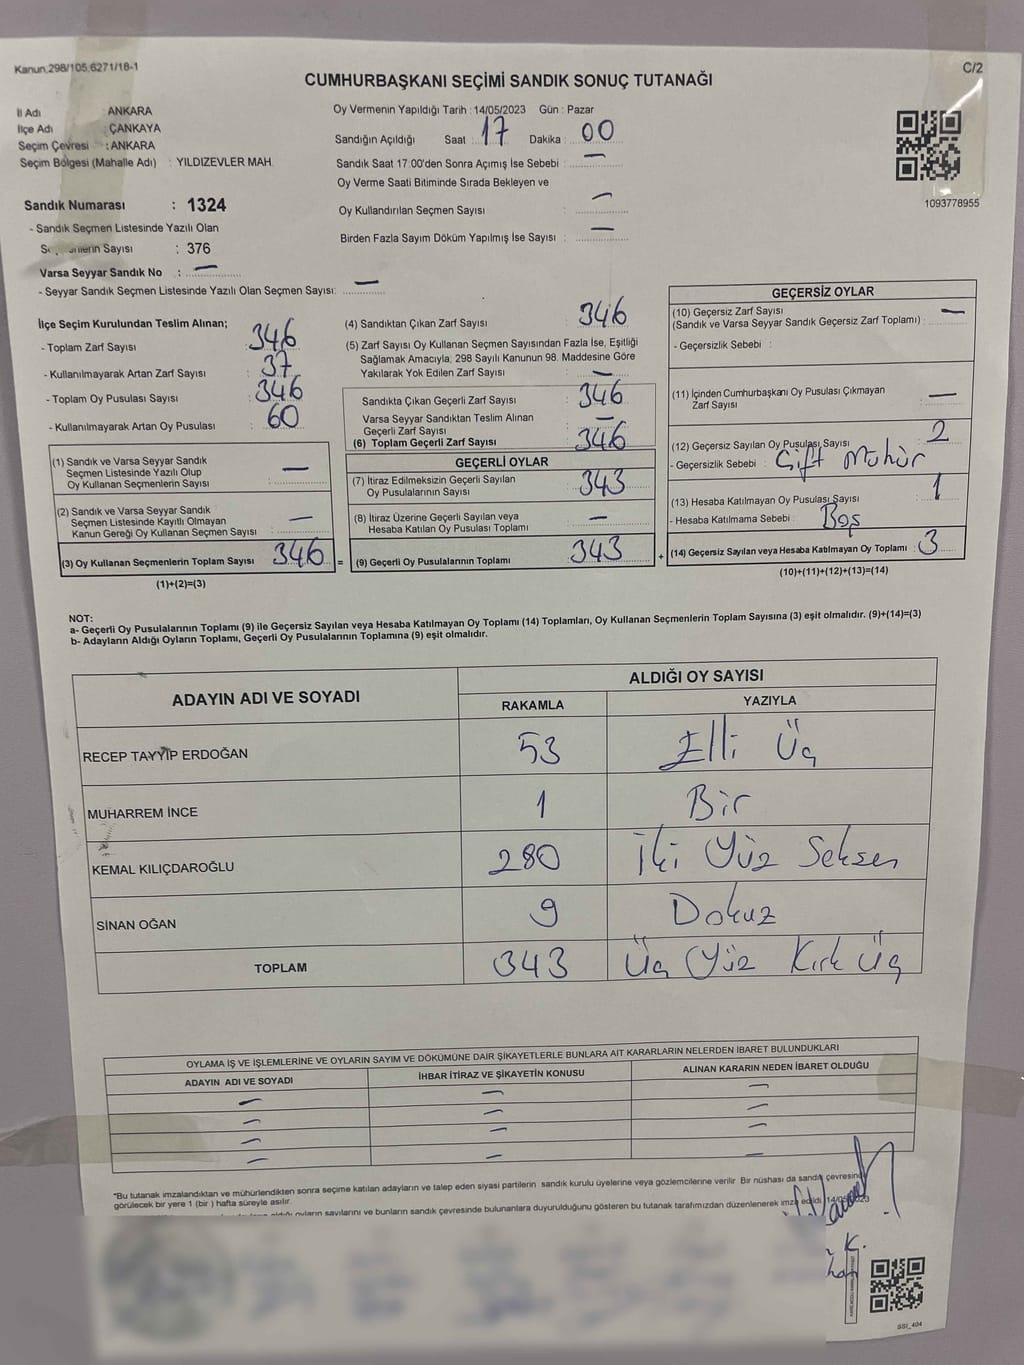 Kanun,298/105,6271/18-1
C/2
CUMHURBAŞKANI SEÇİMİ SANDIK SONUÇ TUTANAĞI
İl Adı : ANKARA
İlçe Adı : ÇANKAYA
Seçim Çevresi : ANKARA
Seçim Bölgesi (Mahalle Adı) : YILDIZEVLER MAH.
Oy Vermenin Yapıldığı Tarih : 14/05/2023 Gün : Pazar
Sandığın Açıldığı Saat : 17 Dakika : 00
Sandık Saat 17:00'den Sonra Açımış İse Sebebi : —
Oy Verme Saati Bitiminde Sırada Bekleyen ve
Oy Kullandırılan Seçmen Sayısı : —
Birden Fazla Sayım Döküm Yapılmış İse Sayısı : —
1093778955
Sandık Numarası : 1324
- Sandık Seçmen Listesinde Yazılı Olan
Sayısı : 376
Varsa Seyyar Sandık No : —
- Seyyar Sandık Seçmen Listesinde Yazılı Olan Seçmen Sayısı: —
İlçe Seçim Kurulundan Teslim Alınan;
- Toplam Zarf Sayısı : 346
- Kullanılmayarak Artan Zarf Sayısı : 37
- Toplam Oy Pusulası Sayısı : 346
- Kullanılmayarak Artan Oy Pusulası : 60
(1) Sandık ve Varsa Seyyar Sandık
Seçmen Listesinde Yazılı Olup
Oy Kullanan Seçmenlerin Sayısı : —
(2) Sandık ve Varsa Seyyar Sandık
Seçmen Listesinde Kayıtlı Olmayan
Kanun Gereği Oy Kullanan Seçmen Sayısı : —
(3) Oy Kullanan Seçmenlerin Toplam Sayısı 346 =
(1)+(2)=(3)
(4) Sandıktan Çıkan Zarf Sayısı : 346
(5) Zarf Sayısı Oy Kullanan Seçmen Sayısından Fazla İse, Eşitliği
Sağlamak Amacıyla, 298 Sayılı Kanunun 98. Maddesine Göre
Yakılarak Yok Edilen Zarf Sayısı : —
Sandıkta Çıkan Geçerli Zarf Sayısı : 346
Varsa Seyyar Sandıktan Teslim Alınan
Geçerli Zarf Sayısı : —
(6) Toplam Geçerli Zarf Sayısı : 346
GEÇERLİ OYLAR
(7) İtiraz Edilmeksizin Geçerli Sayılan
Oy Pusulalarının Sayısı : 343
(8) İtiraz Üzerine Geçerli Sayılan veya
Hesaba Katılan Oy Pusulası Toplamı : —
(9) Geçerli Oy Pusulalarının Toplamı : 343 +
GEÇERSİZ OYLAR
(10) Geçersiz Zarf Sayısı
(Sandık ve Varsa Seyyar Sandık Geçersiz Zarf Toplamı) : —
- Geçersizlik Sebebi :
(11) İçinden Cumhurbaşkanı Oy Pusulası Çıkmayan
Zarf Sayısı : —
(12) Geçersiz Sayılan Oy Pusulası Sayısı : 2
- Geçersizlik Sebebi : Çift Mühür
(13) Hesaba Katılmayan Oy Pusulası Sayısı : 1
- Hesaba Katılmama Sebebi : Boş
(14) Geçersiz Sayılan veya Hesaba Katılmayan Oy Toplamı : 3
(10)+(11)+(12)+(13)=(14)
NOT:
a- Geçerli Oy Pusulalarının Toplamı (9) ile Geçersiz Sayılan veya Hesaba Katılmayan Oy Toplamı (14) Toplamları, Oy Kullanan Seçmenlerin Toplam Sayısına (3) eşit olmalıdır. (9)+(14)=(3)
b- Adayların Aldığı Oyların Toplamı, Geçerli Oy Pusulalarının Toplamına (9) eşit olmalıdır.
ADAYIN ADI VE SOYADI
ALDIĞI OY SAYISI
RAKAMLA YAZIYLA
RECEP TAYYİP ERDOĞAN 53 Elli Üç
MUHARREM İNCE 1 Bir
KEMAL KILIÇDAROĞLU 280 İki Yüz Seksen
SİNAN OĞAN 9 Dokuz
TOPLAM 343 Üç Yüz Kırk Üç
OYLAMA İŞ VE İŞLEMLERİNE VE OYLARIN SAYIM VE DÖKÜMÜNE DAİR ŞİKAYETLERLE BUNLARA AİT KARARLARIN NELERDEN İBARET BULUNDUKLARI
ADAYIN ADI VE SOYADI İHBAR İTİRAZ VE ŞİKAYETİN KONUSU ALINAN KARARIN NEDEN İBARET OLDUĞU
— — —
— — —
— — —
— — —
*Bu tutanak imzalandıktan ve mühürlendikten sonra seçime katılan adayların ve talep eden siyasi partilerin sandık kurulu üyelerine veya gözlemcilerine verilir. Bir nüshası da sandık çevresinde
görülecek bir yere 1 (bir) hafta süreyle asılır.
oyların sayılarını ve bunların sandık çevresinde bulunanlara duyurulduğunu gösteren bu tutanak tarafımızdan düzenlenerek imza edildi.
K.
SSI_404